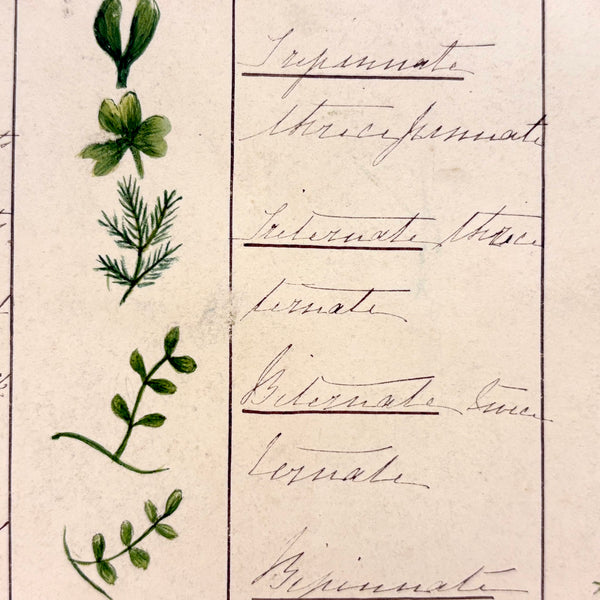 Tripinnate
thrice pinnate
Triternate thrice
ternate
Biternate twice
ternate
Bipinnate